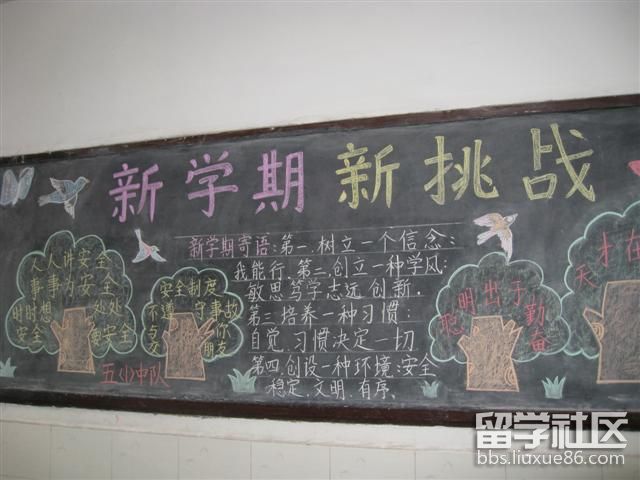 新学期 新挑战
新学期寄语:第一.树立一个信念:
我能行.第二.创立一种学风:
敏思笃学志远 创新.
第三.培养一种习惯:
自觉.习惯决定一切
第四.创设一种环境:安全
稳定.文明.有序.
人人讲安全
事事为安全
时时想 处处
安全 要安全
安全制度
不遵守事故
与交 你
朋友
五(1)中队
聪明出于勤奋
天才在
留学社区
bbs.liuxue86.com